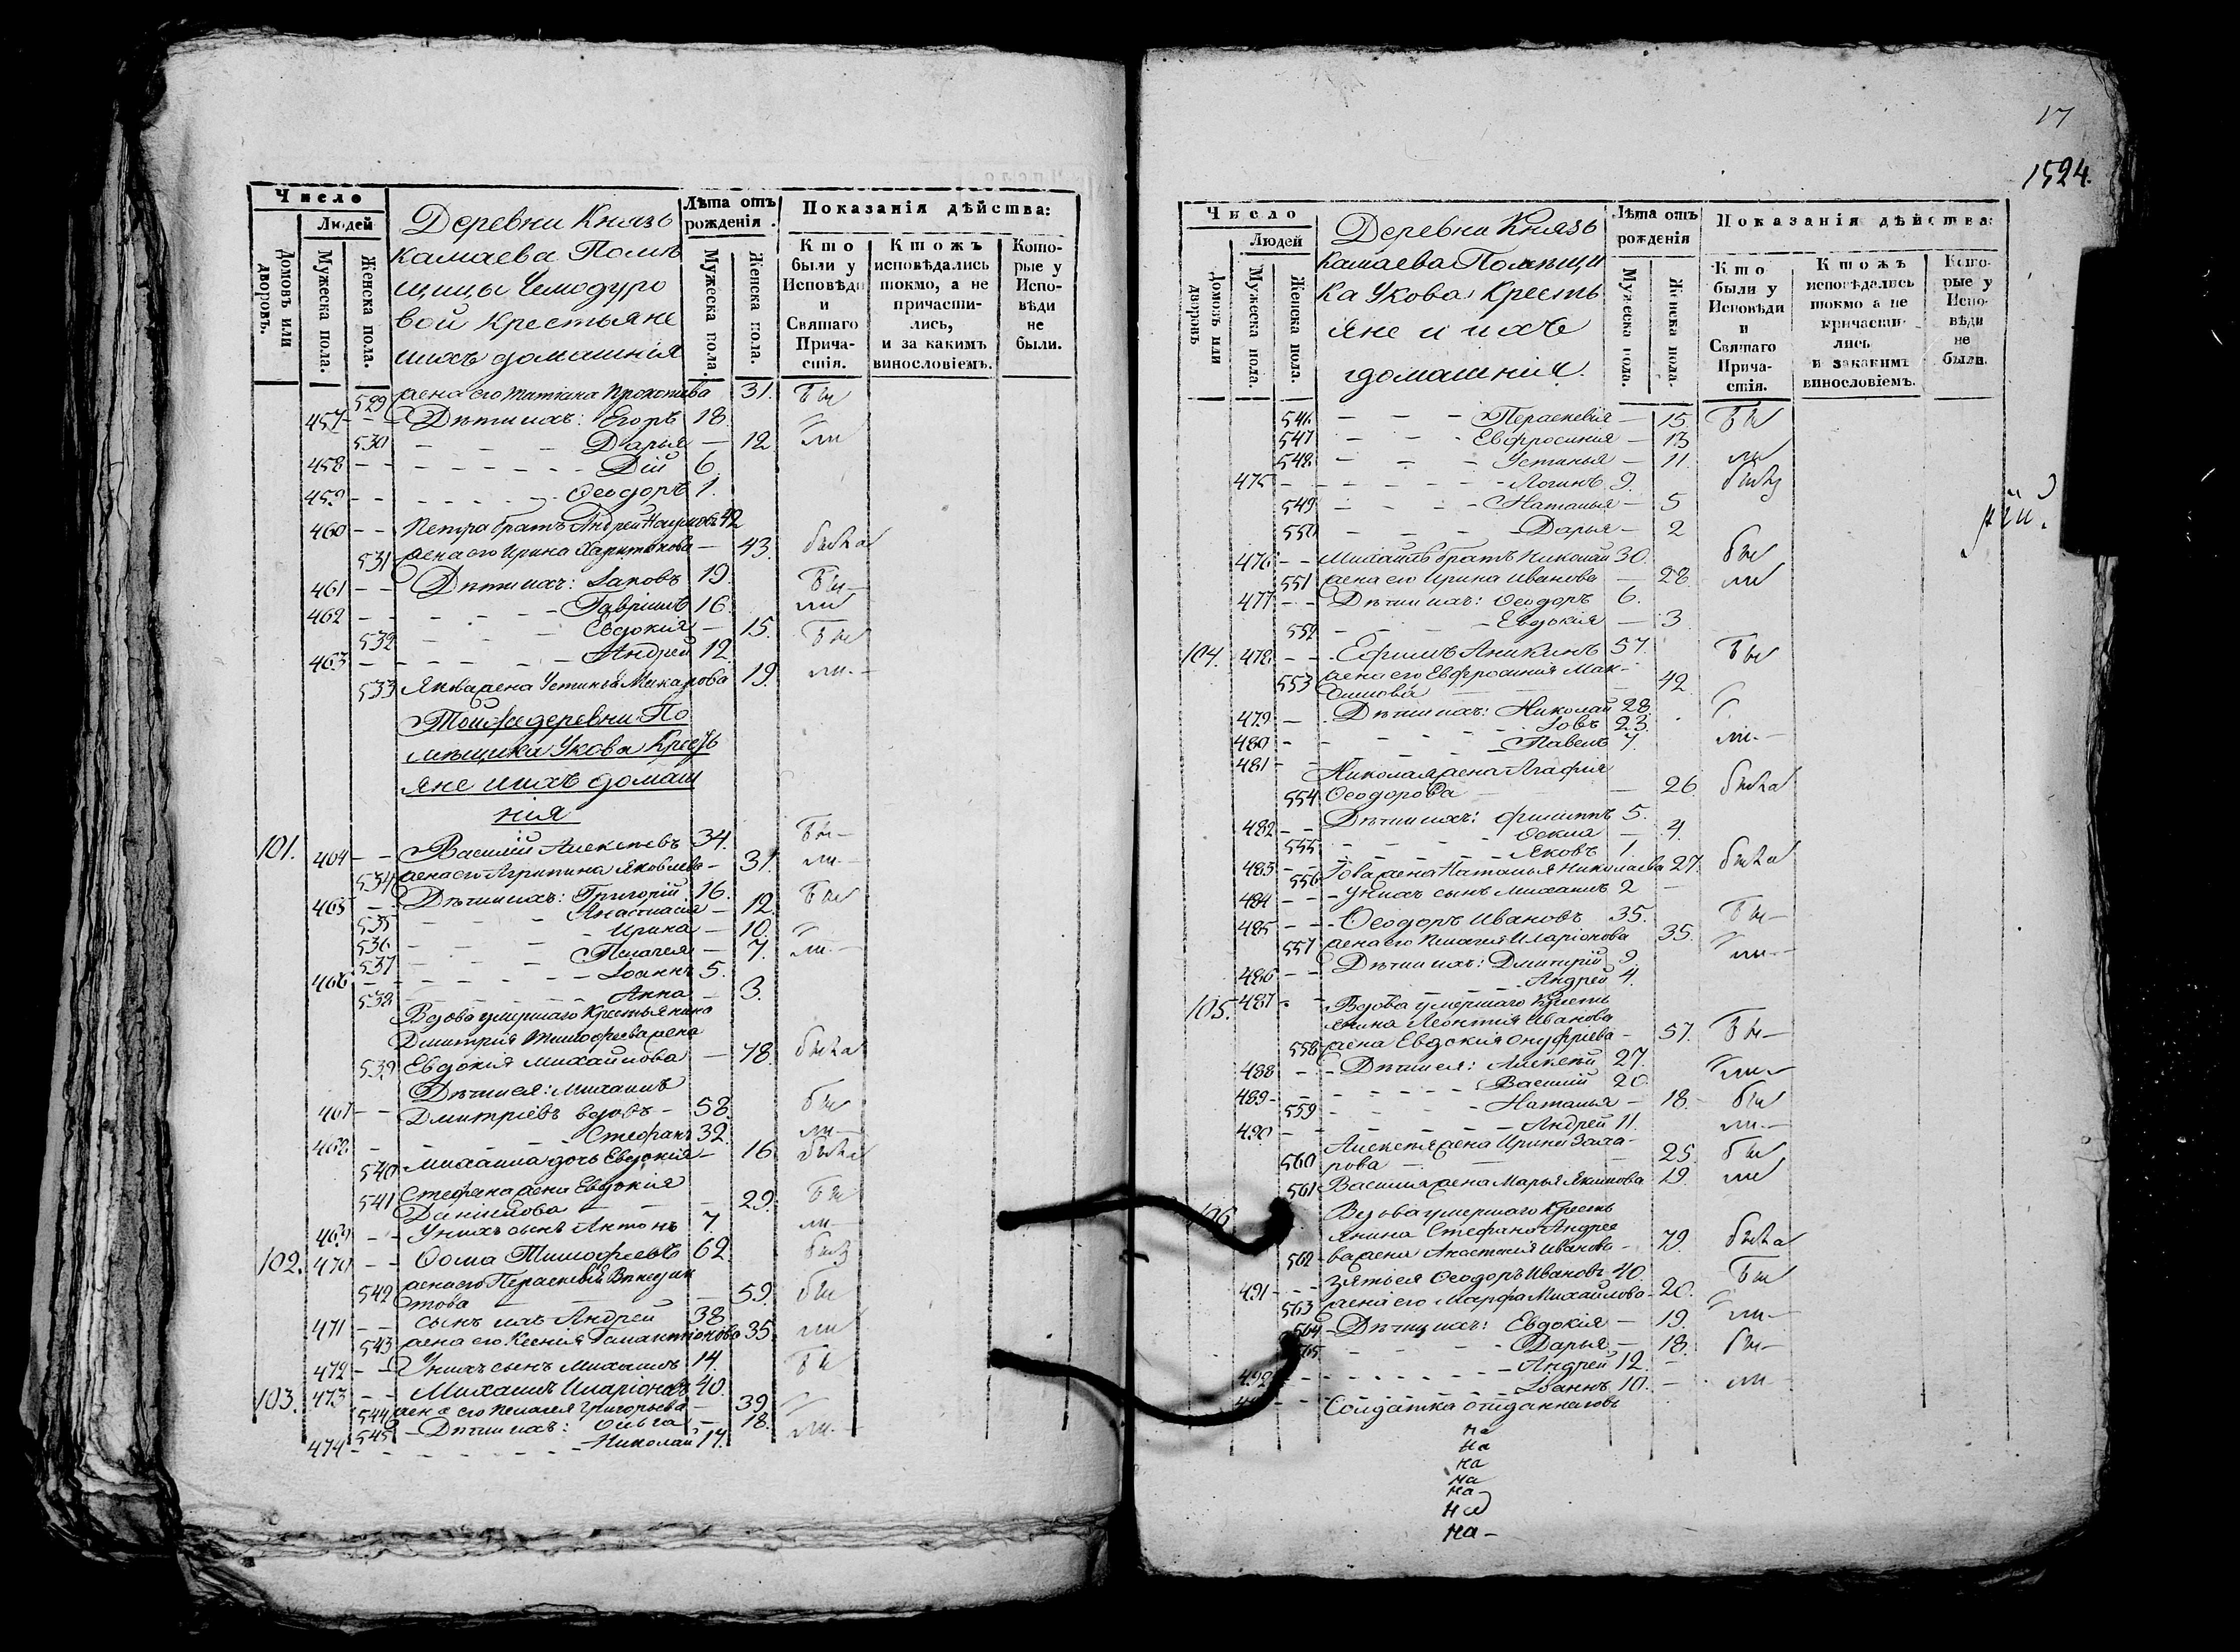 Число
Людей
Домовъ или дворовъ.
Мужеска пола.
Женска пола.
Деревни Князь
Камаева Помѣ
щицы Чемодуро
вой Крестьяне
ихъ домашнія
Лѣта отъ рожденія.
Мужеска пола.
Женска пола.
Показанія дѣйства:
Кто были у Исповѣди и Святаго Причастія.
Ктожъ исповѣдались токмо, а не причастились, и за какимъ винословіемъ.
Которые у Исповѣди не были.
529 жена его Татіана 31. бы
457 - - Дѣти ихъ: Егоръ 18.
530 - - - Дарья - 12. ли
458 - - - - Дій 6.
459 - - - - Ѳеодоръ 1.
460 - - Петра братъ Андрей Наумовъ 42
531 жена его Ирина Харитонова - 43. была
461 - - Дѣти ихъ: Іаковъ 19. бы-
462 - - - - Гавріилъ 16. ли
532 - - - Евдокія - 15. бы
463 - - - - Андрей 12.
533 жена Устинья Макарова 19. ли.-
Той же деревни По
мѣщика Укова Кресть
яне и ихъ домаш
нія
101. 464 - - Василій Алексѣевъ 34. бы-
534 жена его Агрипина Яковлева - 31. ли.-
465 - - Дѣти ихъ: Григорій 16. бы
535 - - - Анастасія - 12.
536 - - - Ирина - 10.
537 - - - Пелагея - 7. ли.-
466 - - - - Іоаннъ 5.
538 - - - Анна - 3.
Вдова умершаго Крестьянина
Дмитрія Тимофеева жена
539 Евдокія Михайлова - 78. была
Дѣти ея: Михаилъ
467 - - Дмитріевъ вдовъ - 58. бы
468 - - - Стефанъ 32. ли-
540 Михаила дочь Евдокія - 16. была
Стефана жена Евдокія
541 Данилова - - 29. бы
469 - - У нихъ сынъ Антонъ 7. ли-
102. 470 - - Ѳома Тимофеевъ 62. былъ
жена его Параскевія
542 - 59. бы
471 - - сынъ ихъ Андрей 38.
543 жена его Ксенія 35. ли
472 - - У нихъ сынъ Михаилъ 14. бы
103. 473 - - Михаилъ Иларіоновъ 40.
544 жена его Пелагея Григорьева - 39.
545 - Дѣти ихъ: Ольга - 18. ли.-
474 - - - - Николай 17.
17
1524.
Число
Людей
Домовъ или дворовъ
Мужеска пола.
Женска пола.
Деревни Князь
Камаева Помѣщи
ка Укова Кресть
яне и ихъ
домашнія.
Лѣта отъ рожденія
Мужеска пола.
Женска пола.
Показанія дѣйства:
Кто были у Исповѣди и Святаго Причастія.
Ктожъ исповѣдались токмо а не причастились и закакимъ винословіемъ.
Которые у Исповѣди не были.
546 - - - Параскевія - 15. бы
547 - - - Евфросинія - 13.
548 - - - Устинья - 11. ли
475 - - - - Логинъ 9. былъ
549 - - - Наталья - 5
550 - - - Дарья - 2
476 - - Михайлъ братъ Николай 30. бы
551 жена его Ирина Иванова - 28. ли
477 - - Дѣти ихъ: Ѳеодоръ 6.
552 - - - Евдокія - 3
104. 478 - - Ефимъ Аникинъ 57. бы
жена его Евфросинія Мак-
553 симова - 42.
479 - - Дѣти ихъ: Николай 28.
480 - - - - Іовъ 23. ли.-
481 - - - - Павелъ 7.
Николая жена Агафія
554 Ѳеодорова - - 26. была
482 - - Дѣти ихъ: Филиппъ 5.
555 - - - Ѳекла - 4.
483 - - - - Яковъ 1.
556 Іова жена Наталья Николаева 27. была
484 - - У нихъ сынъ Михаилъ 2
485 - - Ѳеодоръ Ивановъ 35. бы-
557 жена его Пелагея Иларіонова 35.
486 - - Дѣти ихъ: Дмитрій 9. ли.-
487 - - - - Андрей 4.
105. Вдова умершаго Кресть
янина Леонтія Иванова
558 жена Евдокія Онуфріева - 57. бы-
488 - - Дѣти ея: Алексѣй 27.
489 - - - - Василій 20. ли-
559 - - - Наталья - 18. бы
490 - - - - Андрей 11. ли.-
Алексѣя жена Ирина Заха-
560 рова - - 25. бы
561 Василия жена Марья Якимова 19. ли
106. Вдова умершаго Кресть
янина Стефана Андрее
562 ва жена Анастасія Иванова - 79. была
491 - - Зять ея Ѳеодоръ Ивановъ 40. бы
563 жена его Марфа Михайлова - 20.
564 - Дѣти ихъ: Евдокія - 19. ли-
565 - - - Дарья - 18. бы-
492 - - - - Андрей 12. -
- - - - Іоаннъ 10. - ли-
Солдатка
на
на
на
на
на-
на
на-